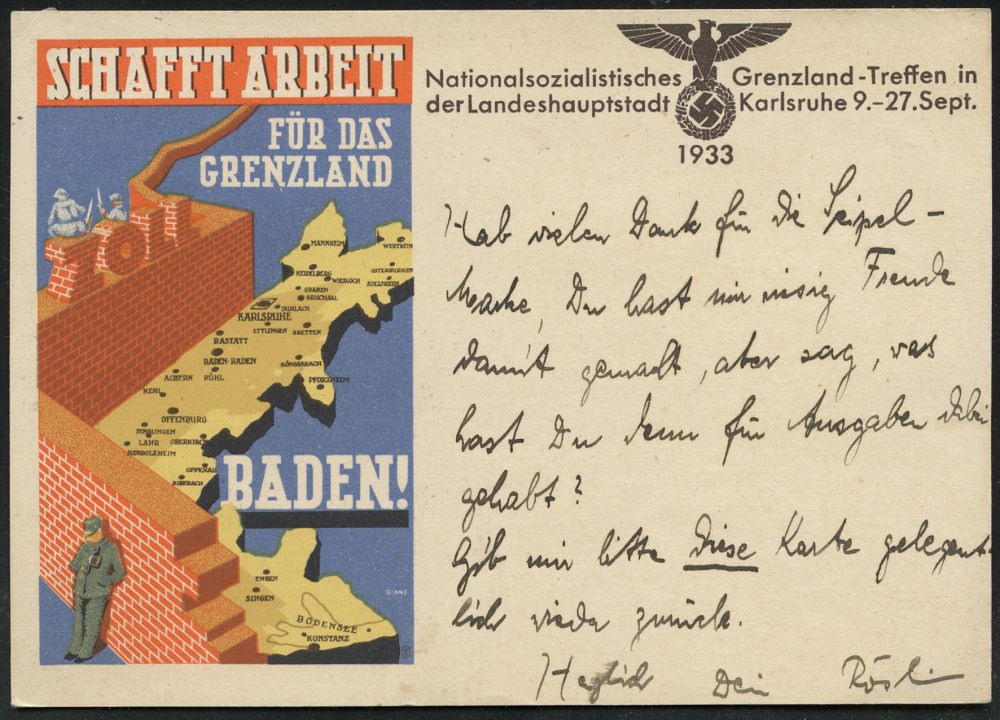 SCHAFFT ARBEIT
FÜR DAS
GRENZLAND
MANNHEIM
WERTHEIM
HEIDELBERG
OSTERBURKEN
WIESLOCH
ADELSHEIM
GRABEN
BRUCHSAL
DURLACH
KARLSRUHE
ETTLINGEN
BRETTEN
RASTATT
BADEN-BADEN
KÖNIGSBACH
ACHERN
BÜHL
PFORZHEIM
KEHL
OFFENBURG
DINGLINGEN
LAHR
OBERKIRCH
HERBOLZHEIM
OPPENAU
BIBERACH
BADEN!
ENGEN
SINGEN
BODENSEE
KONSTANZ
Nationalsozialistisches Grenzland-Treffen in
der Landeshauptstadt Karlsruhe 9.-27. Sept.
1933
Hab vielen Dank für die Seipel-
Marke, Du hast mir riesig Freude
damit gemacht, aber sag, was
hast Du denn für Ausgaben dabei
gehabt?
Gib mir bitte diese Karte gelegent-
lich wieder zurück.
Herzlich Dein Rösli